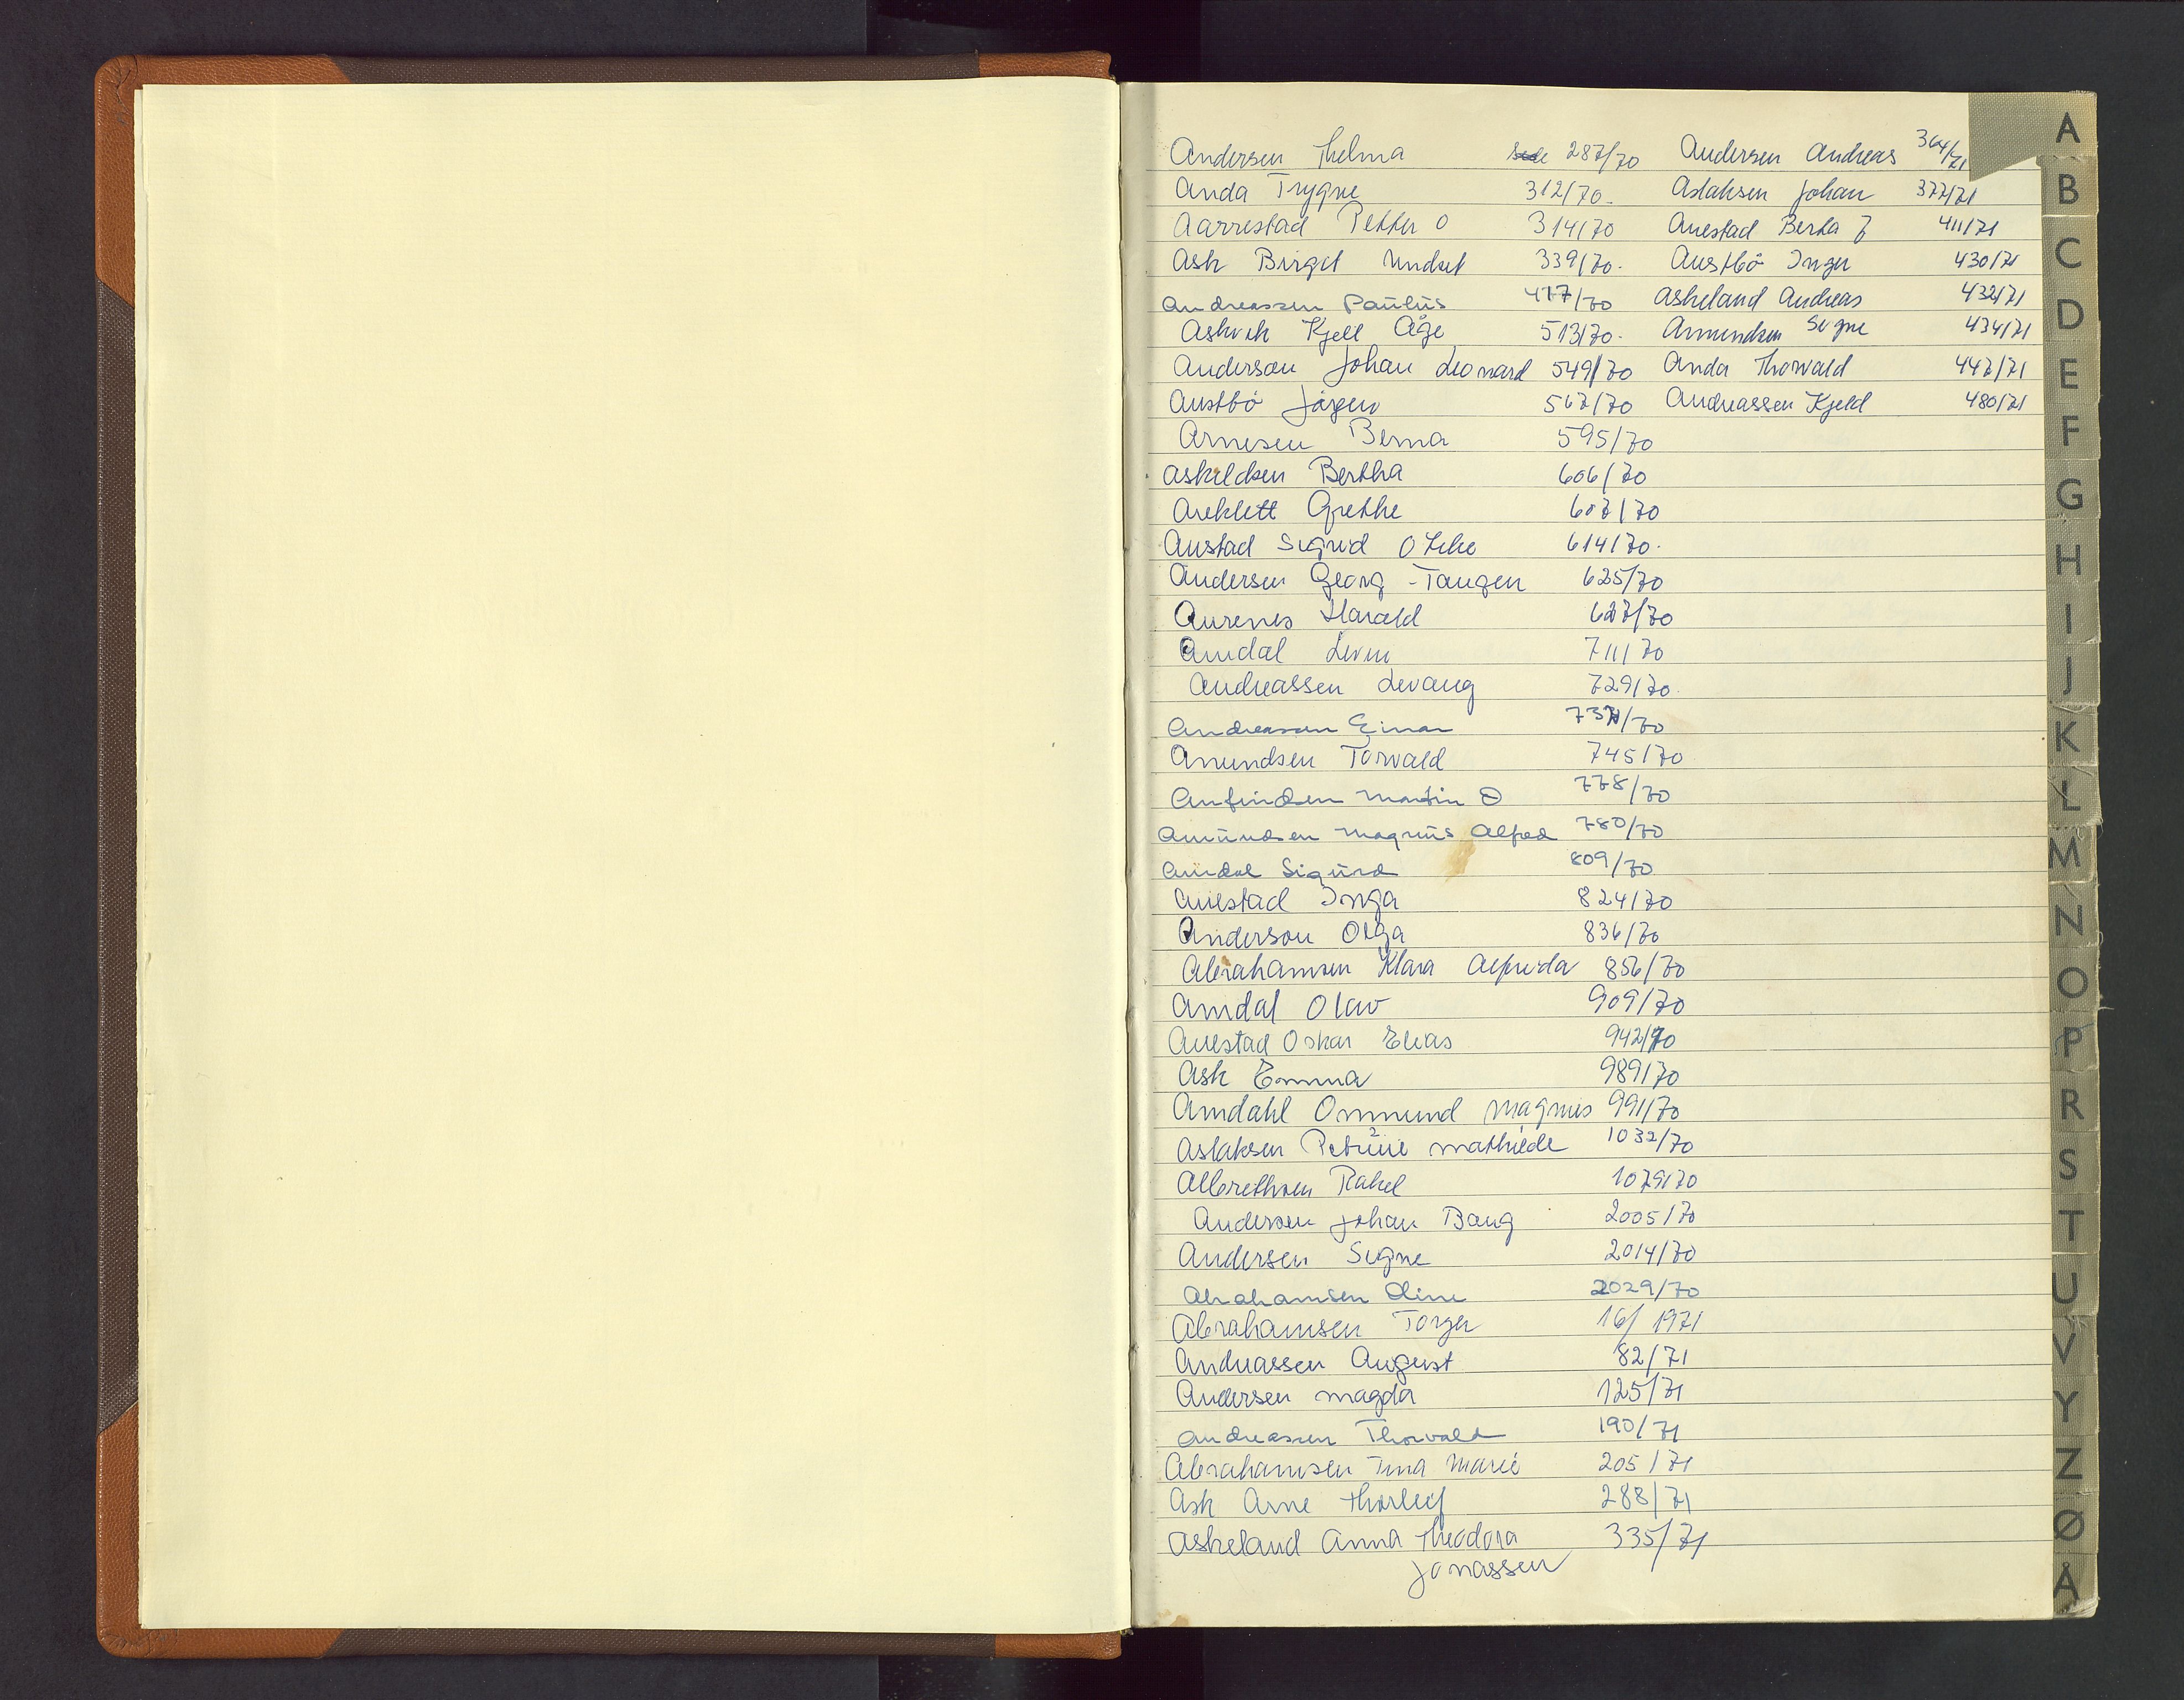 Andersen Thelma side 287/70
Anda Trygve 312/70.
Aarrestad Petter O 314/70
Ask Birgit Undset 339/70.
Andreassen Paulus 417/70
Askvik Kjell Åge 513/70.
Anderson Johan Leonard 549/70
Austbö Jörgen 567/70
Arnesen Berna 595/70
Askildsen Bertha 606/70
Areklett Grethe 607/70
Austad Sigrid 614/70.
Andersen Georg - Tangen 625/70
Aurenes Harald 627/70
Amdal 711/70
Andreassen Levang 729/70.
Andreassen Einar 70
Anundsen Torvald 745/70
Anfindsen Martin O 778/70
Amundsen Magnus Alfred 780/70
Amdal Sigurd 809/70
Auestad Inga 824/70
Anderson Olga 836/70
Abrahamsen Klara Alfrida 856/70
Amdal Olav 909/70
Auestad Oskar Elias 942/70
Ask Emma 989/70
Amdahl Ommund Magnus 991/70
Aslaksen Petrine Mathilde 1032/70
Albrethsen Rakel 1079/70
Andersen Johan Bang 2005/70
Andersen Signe 2014/70
Abrahamsen Oline 2029/70
Abrahamsen Torger 16/1971
Andreassen August 82/71
Andersen Magda 125/71
Andreassen Thorvald 190/71
Abrahamsen Tina Marie 205/71
Ask Arne Thorleif 288/71
Askeland Anna Theodora 335/71
Jonassen
Andersen Andreas 364/71
Aslaksen Johan 377/71
Auestad Berta 411/71
Austbö Inger 430/71
Askeland Andreas 432/71
Amundsen Signe 434/71
Anda Thorvald 447/71
Andreassen Kjeld 480/71
A
B
C
D
E
F
G
H
I
J
K
L
M
N
O
P
R
S
T
U
V
Y
Z
Ø
Å